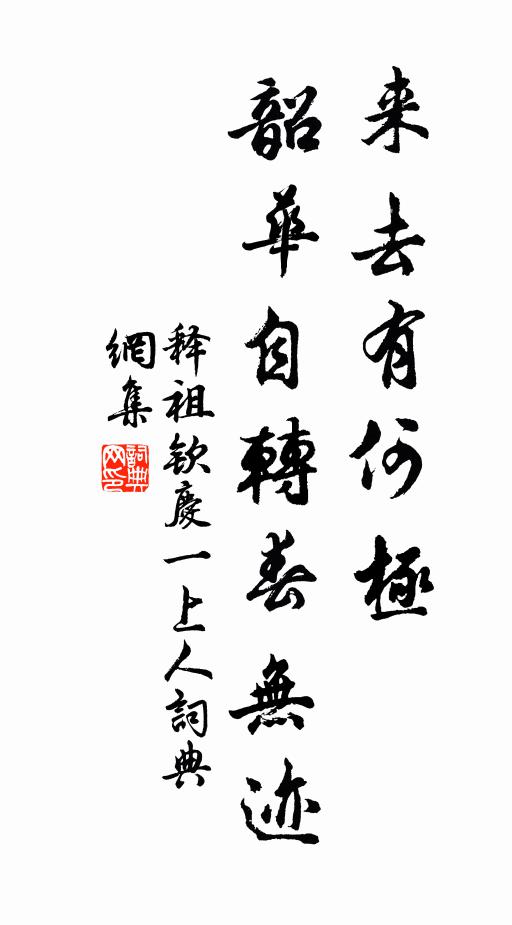 来去有何極
韶華自轉春無迹
释祖钦慶一上人詞典
網集
詞典
网印